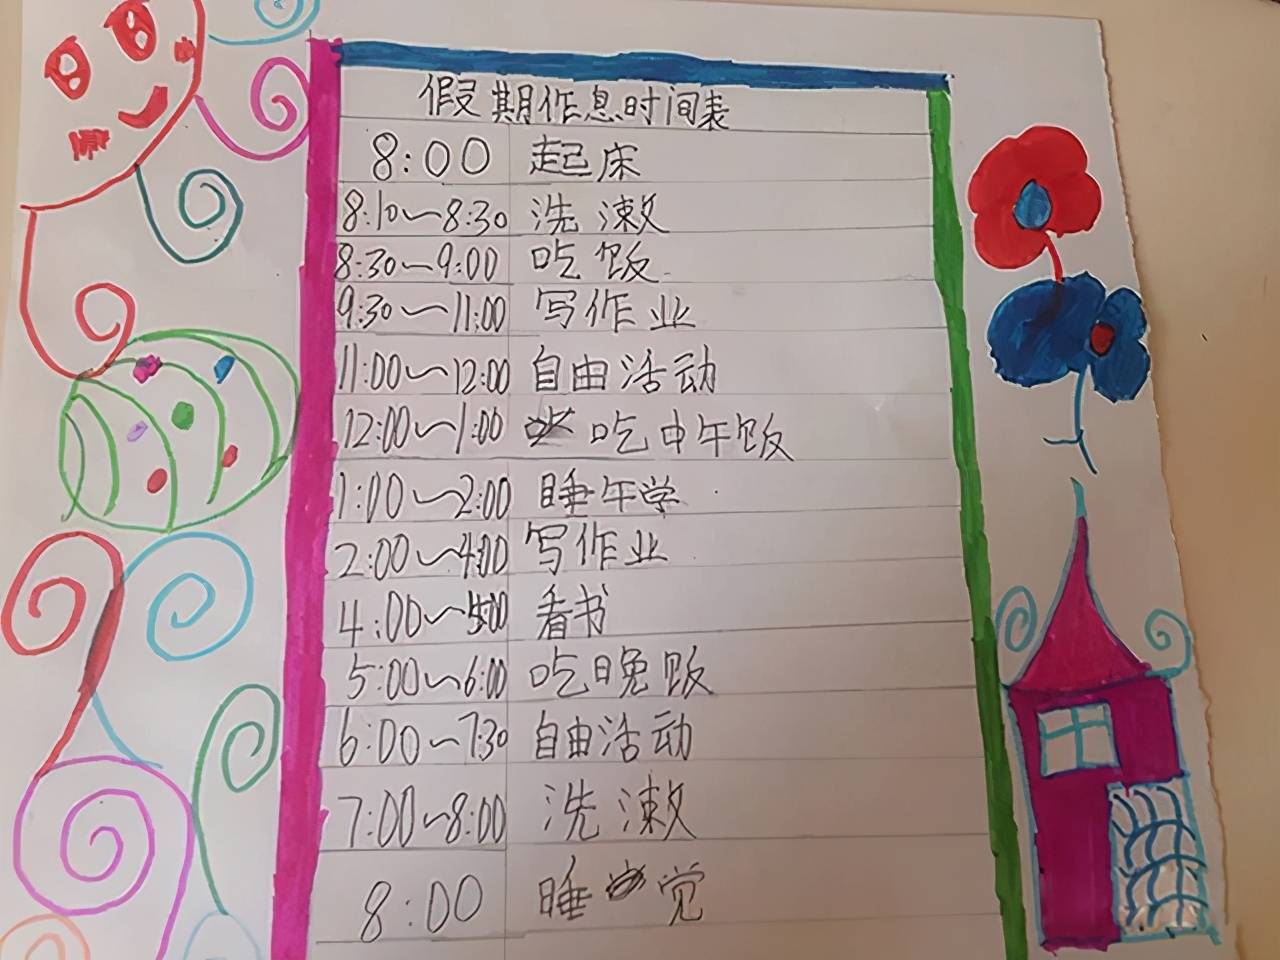 假期作息时间表
8:00 起床
8:10~8:30 洗漱
8:30~9:00 吃饭
9:30~11:00 写作业
11:00~12:00 自由活动
12:00~1:00 吃中午饭
1:00~2:00 睡午学
2:00~4:00 写作业
4:00~5:00 看书
5:00~6:00 吃晚饭
6:00~7:30 自由活动
7:00~8:00 洗漱
8:00 睡觉